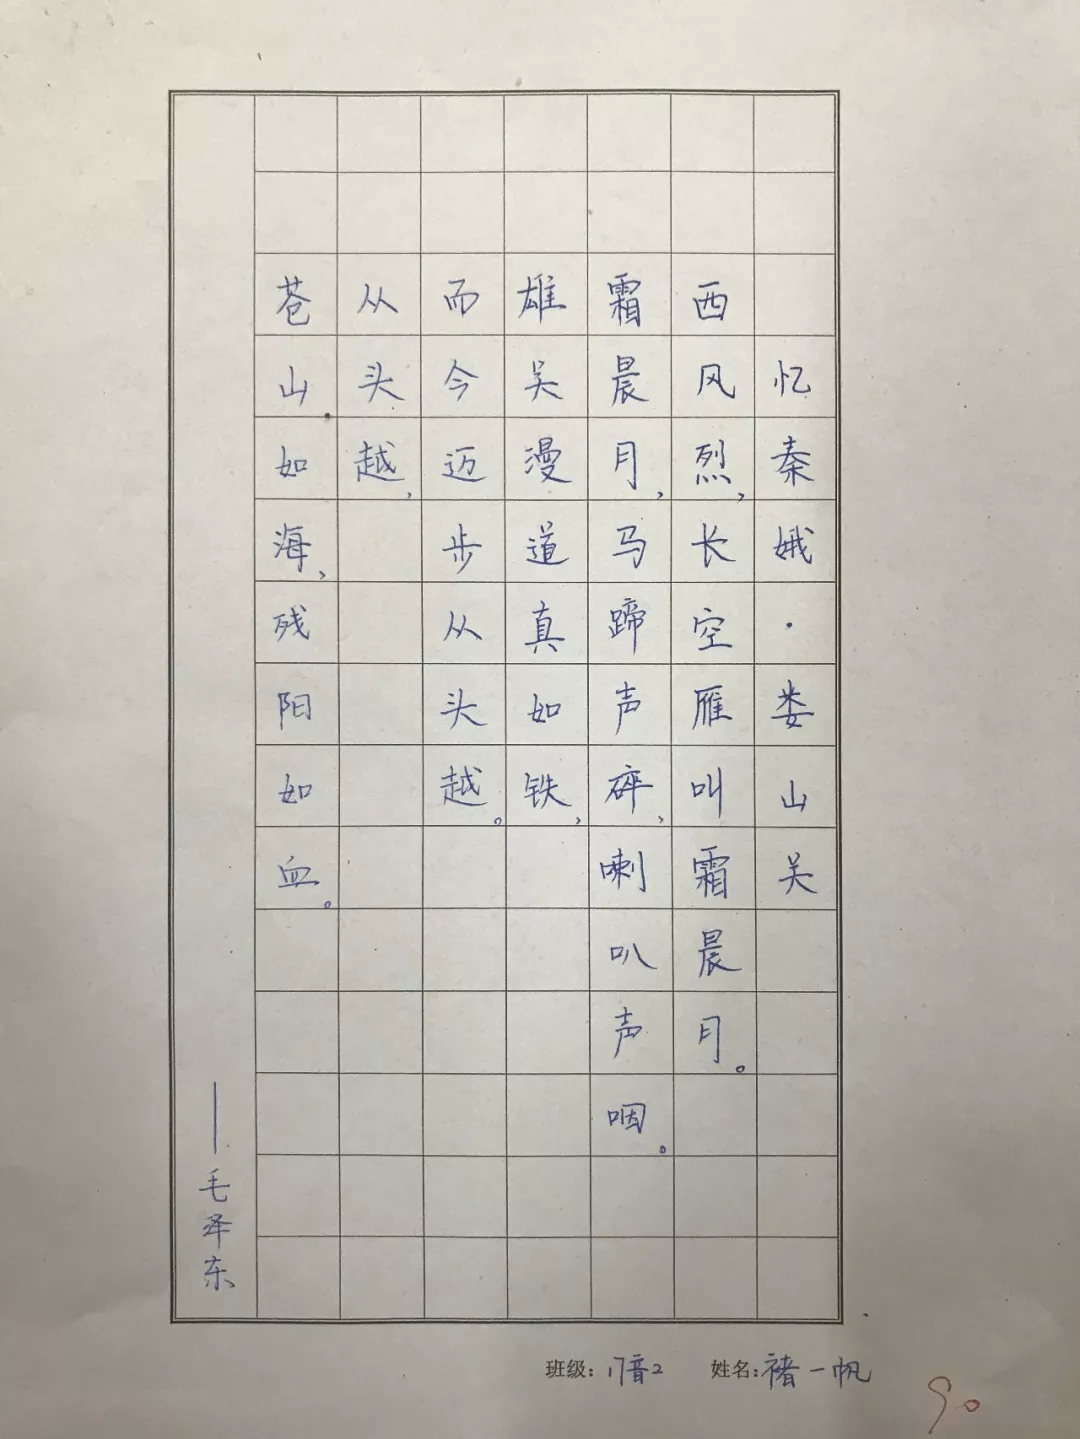 忆秦娥·娄山关
西风烈，长空雁叫霜晨月。
霜晨月，马蹄声碎，喇叭声咽。
雄关漫道真如铁，
而今迈步从头越。
从头越，
苍山如海，残阳如血。
——毛泽东
班级：17音2 姓名：褚一帆
90